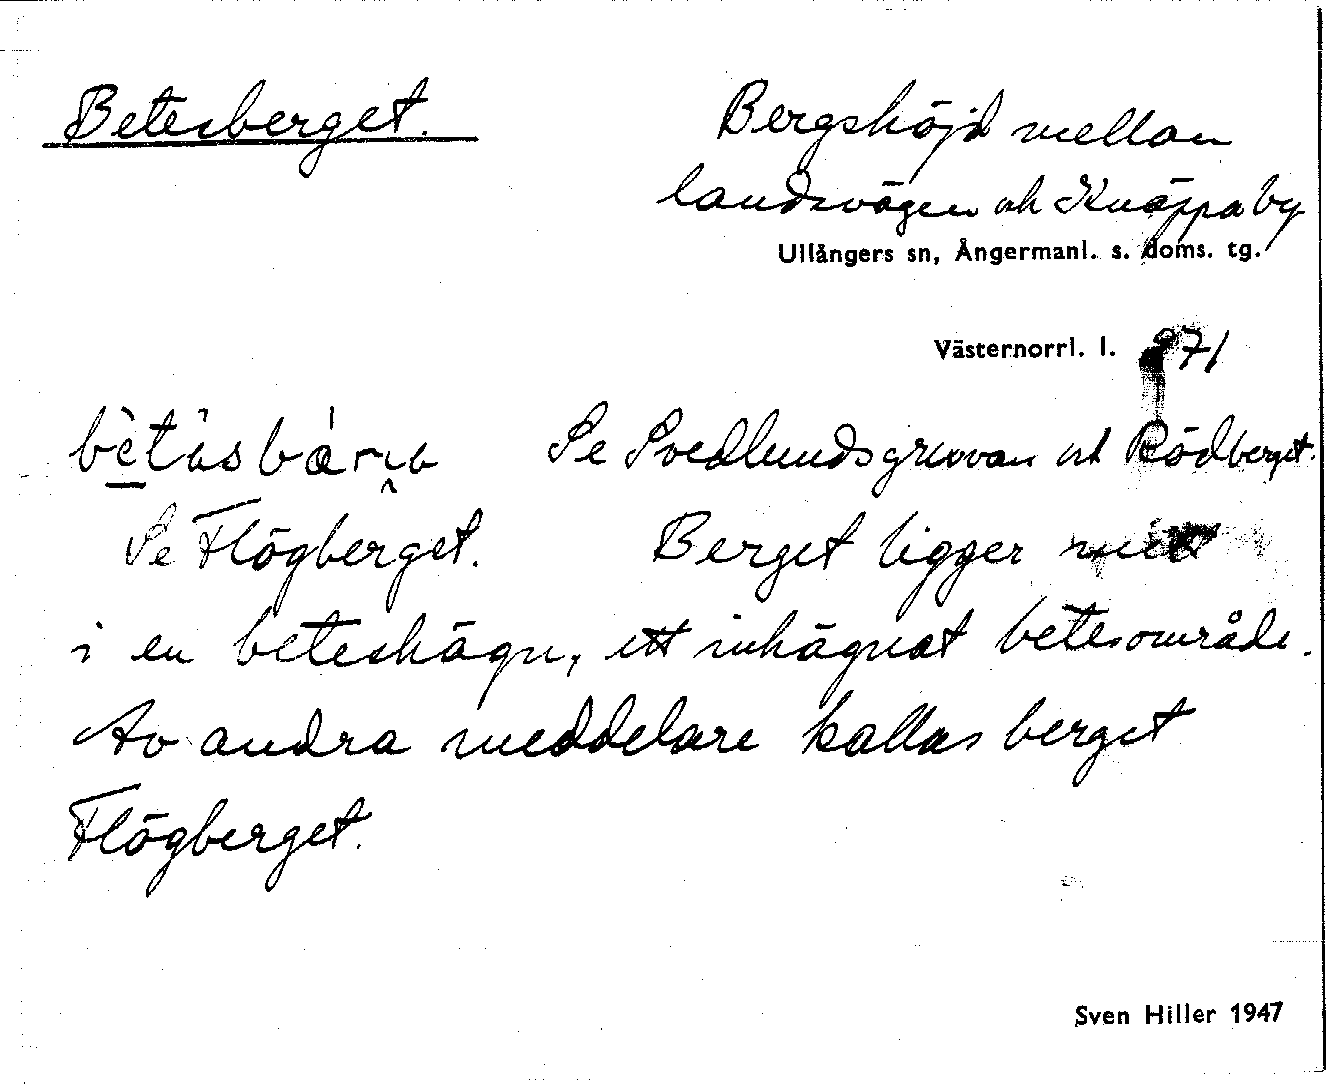 Betesberget.
Bergshöjd mellan
landsvägen och Knäppaby
Ullångers sn, Ångermanl. s. doms. tg.
Västernorrl. l. 971
Se Svedlundsgruvan och Rödberget.
Se Flögberget. Berget ligger mitt
i en beteshägn, ett inhägnat betesområde.
Av andra meddelare kallas berget
Flögberget.
Sven Hiller 1947